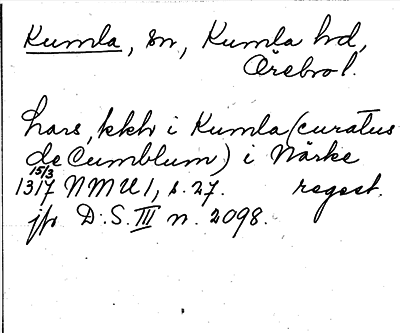 Kumla, sn, Kumla hd,
Örebro l.
Lars, kkh i Kumla (curatus
de Cumblum) i Närke
15/3
1317 NMU 1, s. 27. regest.
jfr D.S. III n. 2098.